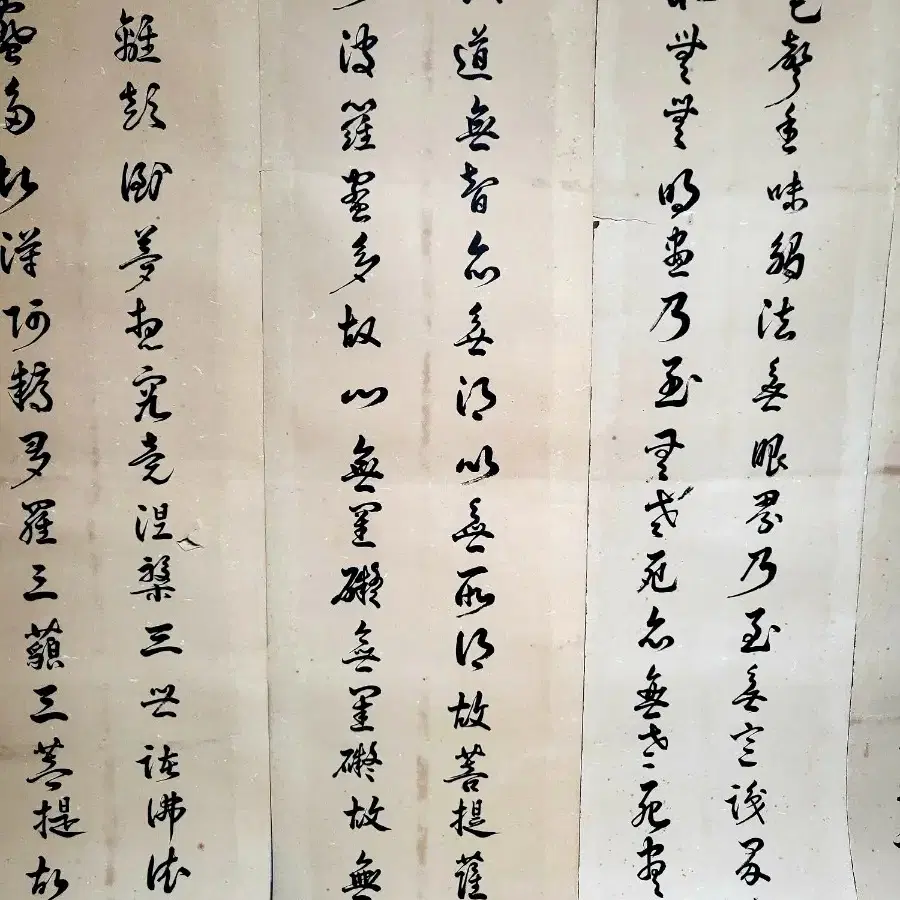 色聲香味觸法無眼界乃至無意識界
無無明盡乃至無老死亦無老死盡
道無智亦無得以無所得故菩提薩
波羅蜜多故心無罣礙無罣礙故無
離顛倒夢想究竟涅槃三世諸佛依
蜜多故得阿耨多羅三藐三菩提故